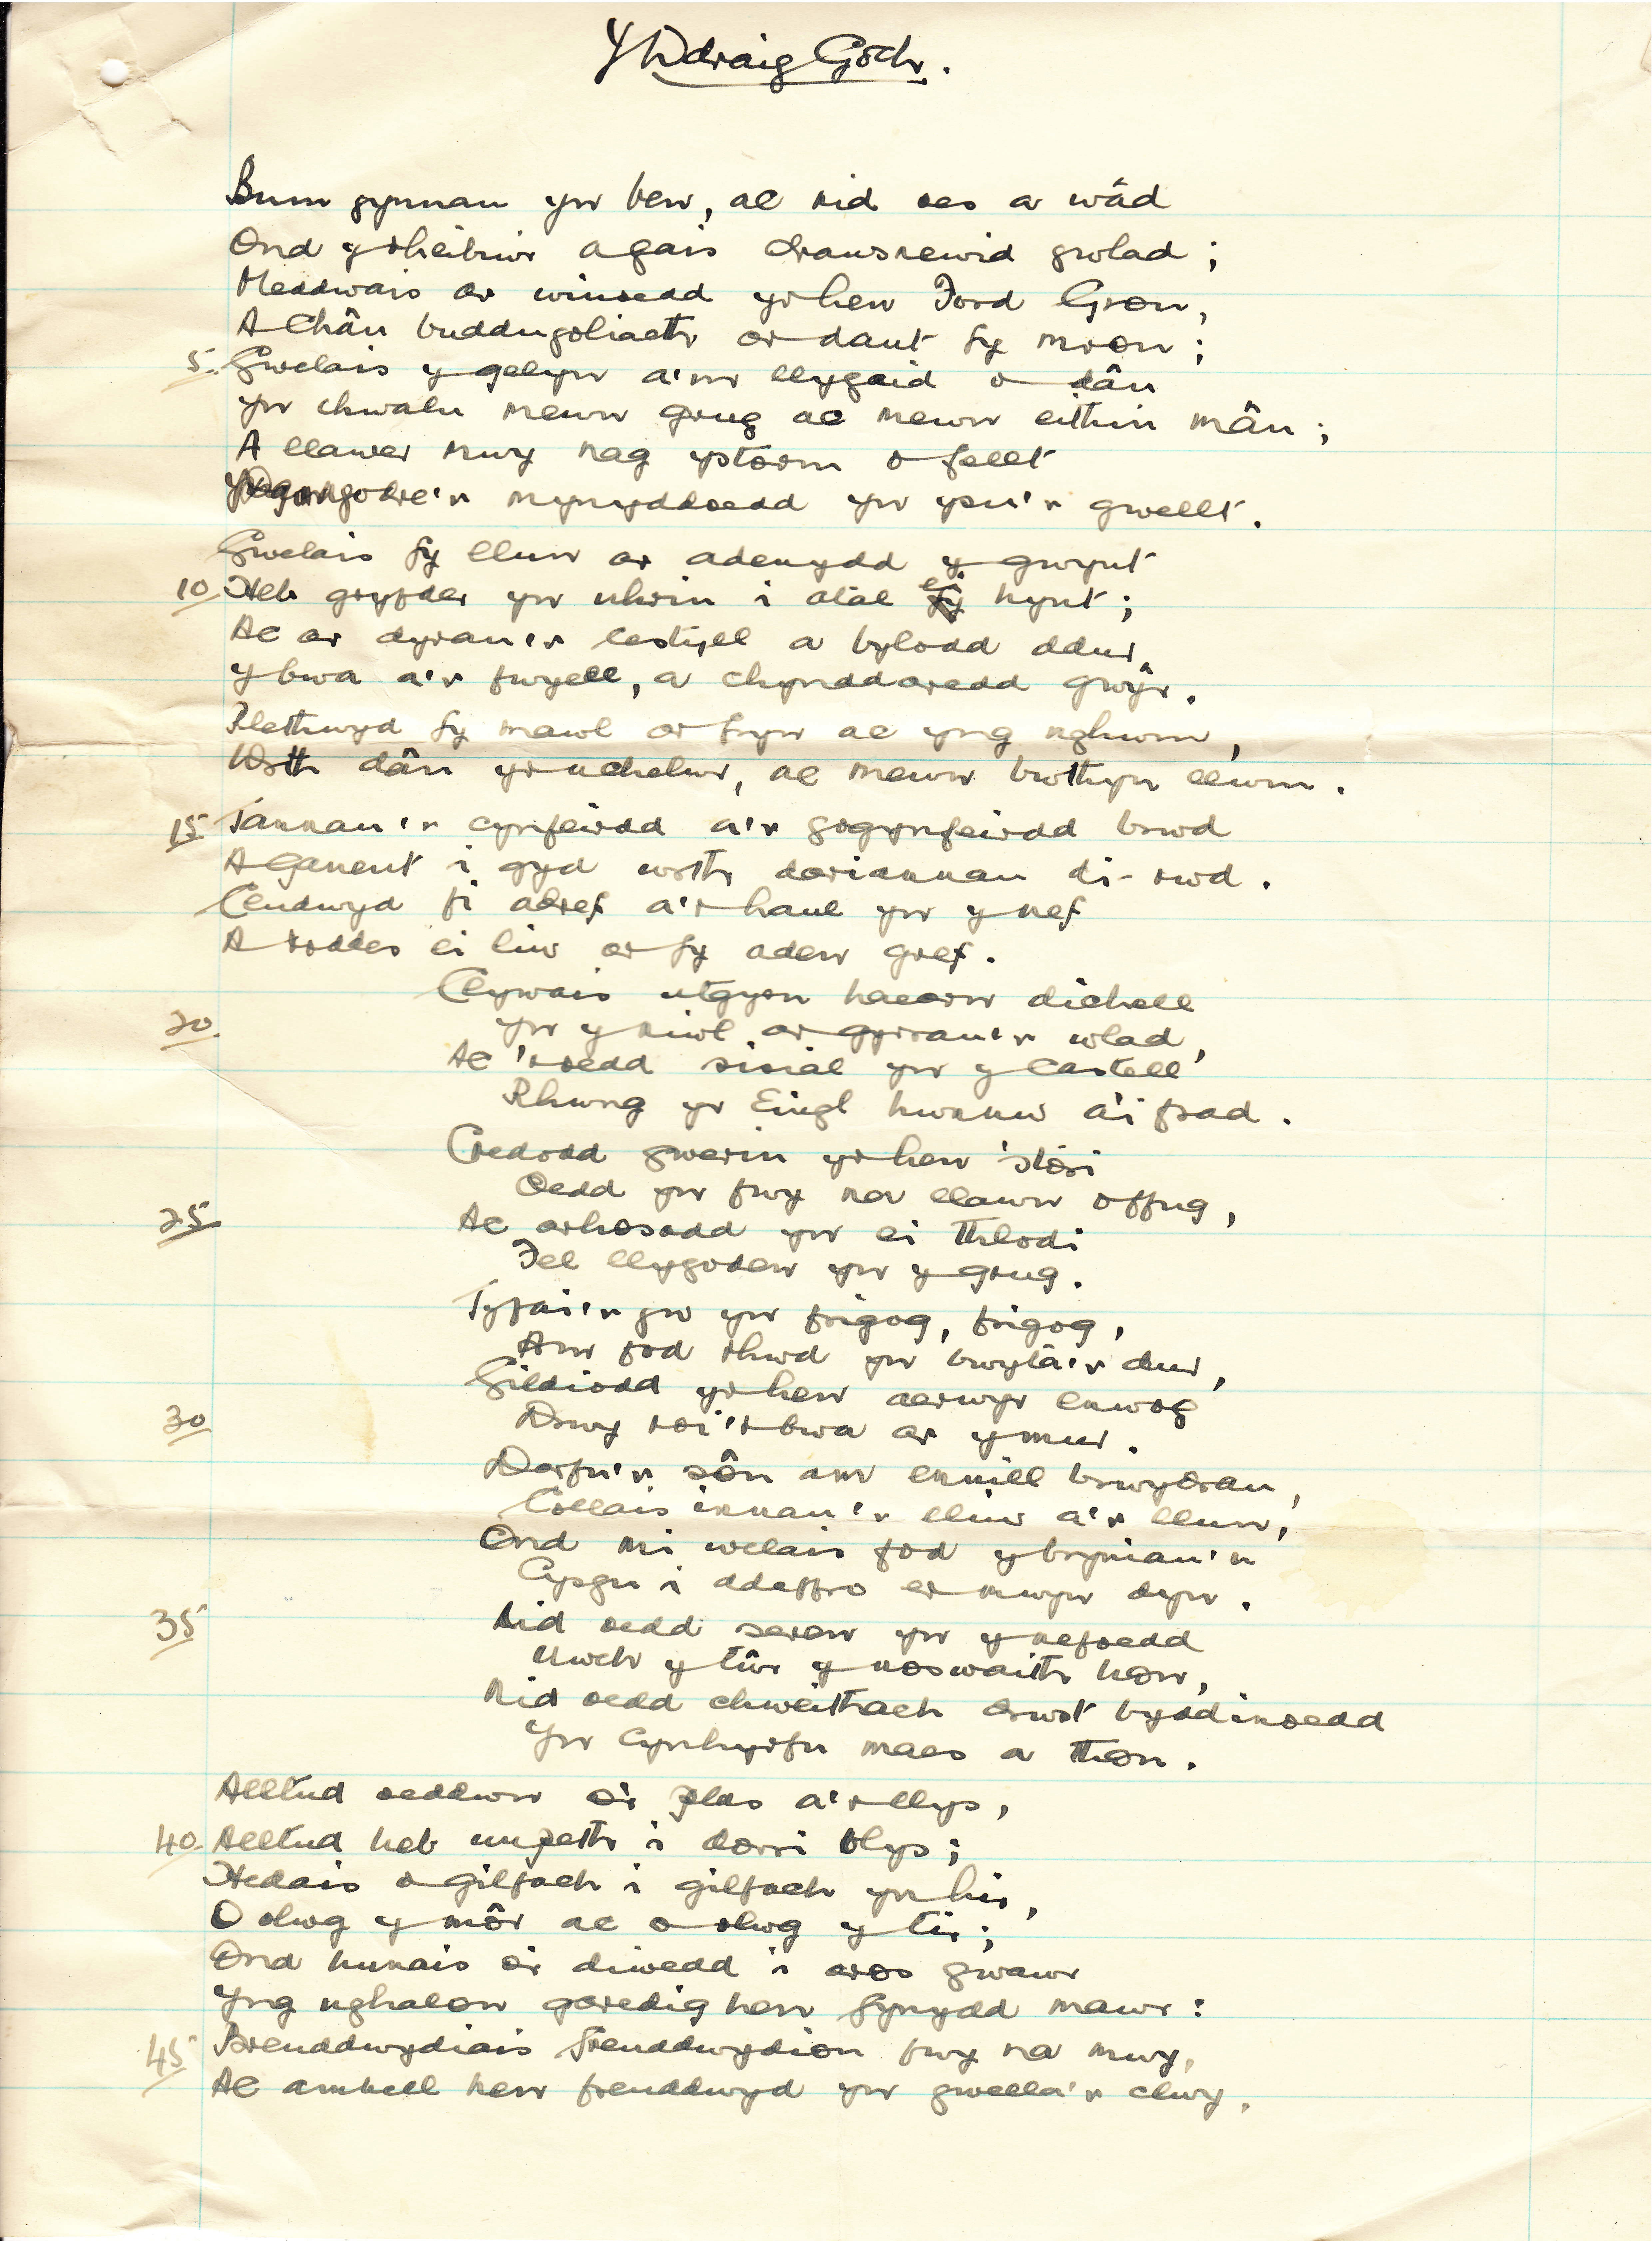 Y Ddraig Goch.
Bum gynnau yn ben, ac nid oes a wâd
Ond y rheibiwr a gais dranc enwid gwlad;
Meddwais ar winoedd yr hen Ford Gron,
A chân buddugoliaeth ar dant fy mron;
5. Gwelais y gelyn a'm llygaid o dân
Yn chwalu mewn grug ac mewn eithin mân;
A llawer mwy nag ystorm o fellt
godre'r mynyddoedd yn ysu'r gwellt.
Gwelais fy llun ar adenydd y gwynt
10. Heb gryfder yn unrhin i atal ei hynt;
Ac ar dyrau'r cestyll a bylodd ddur,
Y bwa a'r fwyell, a chynddaredd gwŷr.
Plethwyd fy mawl ar fryn ac yng nghwm,
Wrth dân yr uchelwr, ac mewn bwthyn llwm.
15 Tannau'r cynfeirdd a'r gogynfeirdd brwd
A ganent i gyd wrth doriannau di-rwd.
Cludwyd fi adref a'r haul yn y nef
A roddes ei liw ar fy aden gref.
Clywais utgyrn haearn dichell
20. Yn y niwl ar gyrrau'r wlad,
Ac 'roedd sisial yn y Castell
Rhwng yr Eingl hwnnw a'i frad.
Credodd gwerin yr hen 'stori
Oedd yn fwy na llawn o ffug,
25 Ac arhosodd yn ei thlodi
Fel llygoden yn y grug.
Tyfai'r yw yn frigog, frigog,
Am fod rhwd yn bwyta'r dur,
Gildiodd yr hen aerwyr enwog
30 Drwy roi'r bwa ar y mur.
Darfu'r sôn am ennill brwydrau,
Collais innau'r lliw a'r llun,
Ond mi welais fod y bryniau'n
Cysgu i ddeffro er mwyn dyn.
35 Nid oedd seren yn y nefoedd
Uwch y tŵr y noswaith hon,
Nid oedd chwaithach trwst byddinoedd
Yn cynhyrfu maes a thon.
Alltud oeddwn o'r plas a'r llys,
40. Alltud heb unpeth i dorri blys;
Hedais o gilfach i gilfach yn hir,
O olwg y môr ac o olwg y tir;
Ond hunais o'r diwedd i aros gwawr
Yng nghalon garedig hen fynydd mawr:
45 Breuddwydiais freuddwydion fwy na mwy,
Ac ambell hen freuddwyd yn gwella'r clwy.